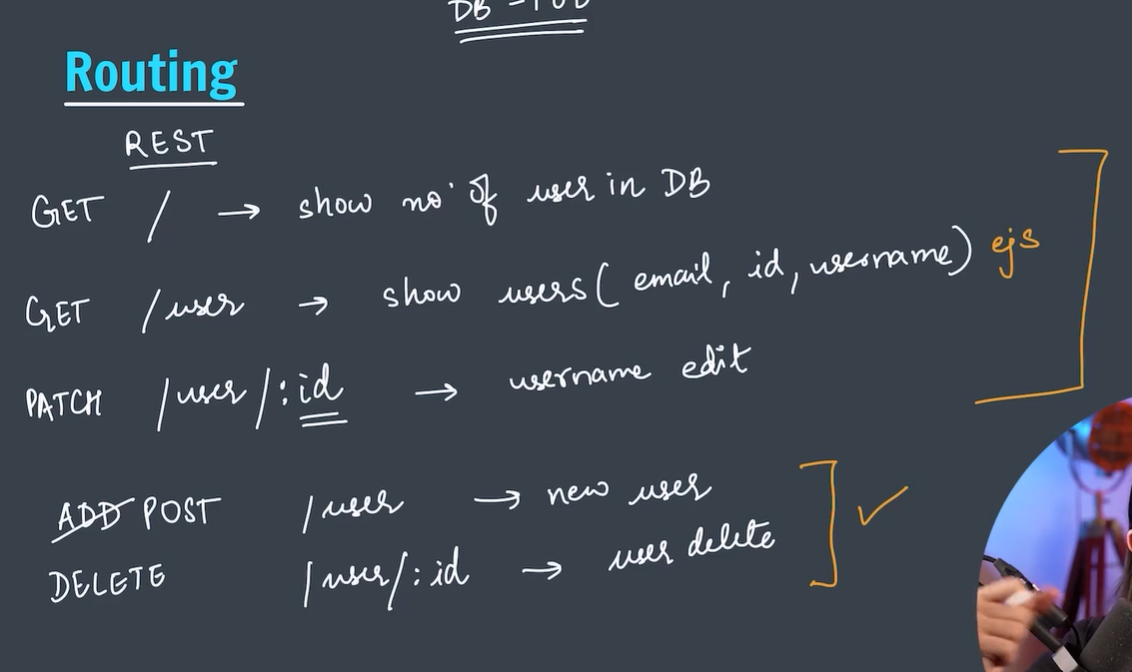 DB -
Routing
REST
GET / → show no. of user in DB
GET /user → show users( email, id, username) ejs
PATCH /user/:id → username edit
ADD POST /user → new user
DELETE /user/:id → user delete